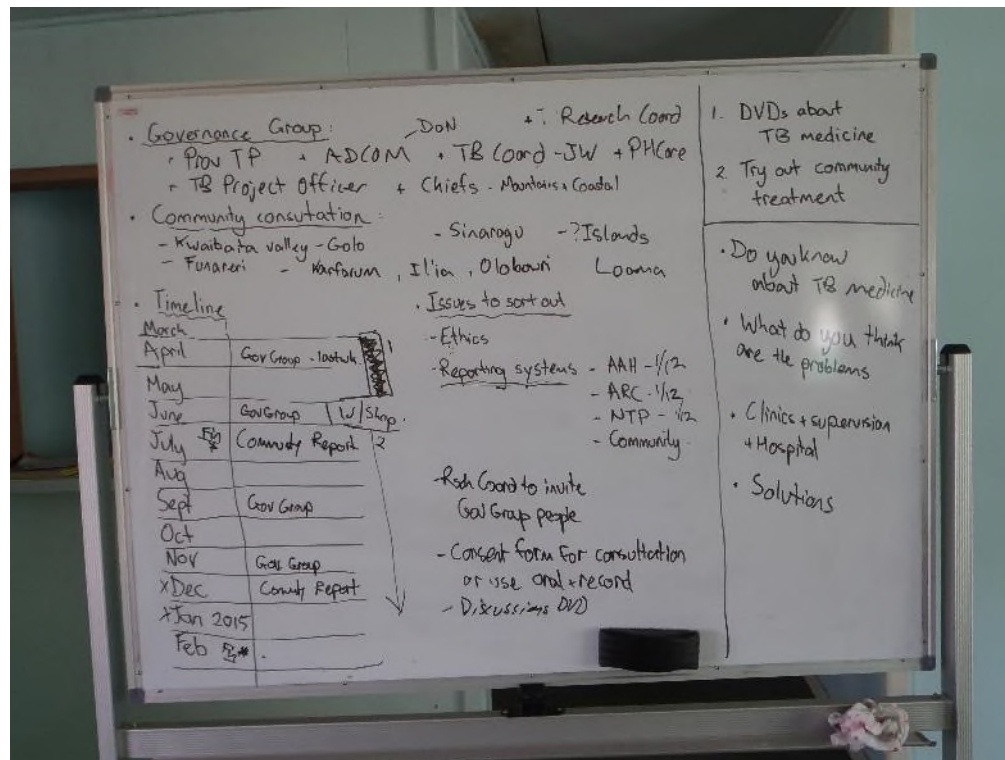 • Governance Group:
DON
+ ? Research Coord
• Prov TP + ADCOM + TB Coord - JW + PHCare
+ TB Project Officer + Chiefs - Mountains + Coastal
• Community consutation:
- Kwaibaita valley - Golo - Sinaragu - ?Islands
- Funareri - Karfarum, Ilia, Olobauri Loama
• Timeline
March
April Gov Group - last wk
May
June Gov Group W/Shop.
July Commuty Report 2
Aug
Sept Gov Group
Oct
Nov Gov Group
xDec Comuty Report
xJan 2015
Feb
• Issues to sort out
- Ethics
- Reporting systems - AAH - 1/12
- ARC - 1/12
- NTP - 1/12
- Community
- Rsch Coord to invite
Gov Group people
- Consent form for consultation
or use oral + record
- Discussions DVD
1. DVDs about
TB medicine
2. Try out community
treatment
• Do you know
about TB medicine
• What do you think
are the problems
• Clinics + supervision
+ Hospital
• Solutions